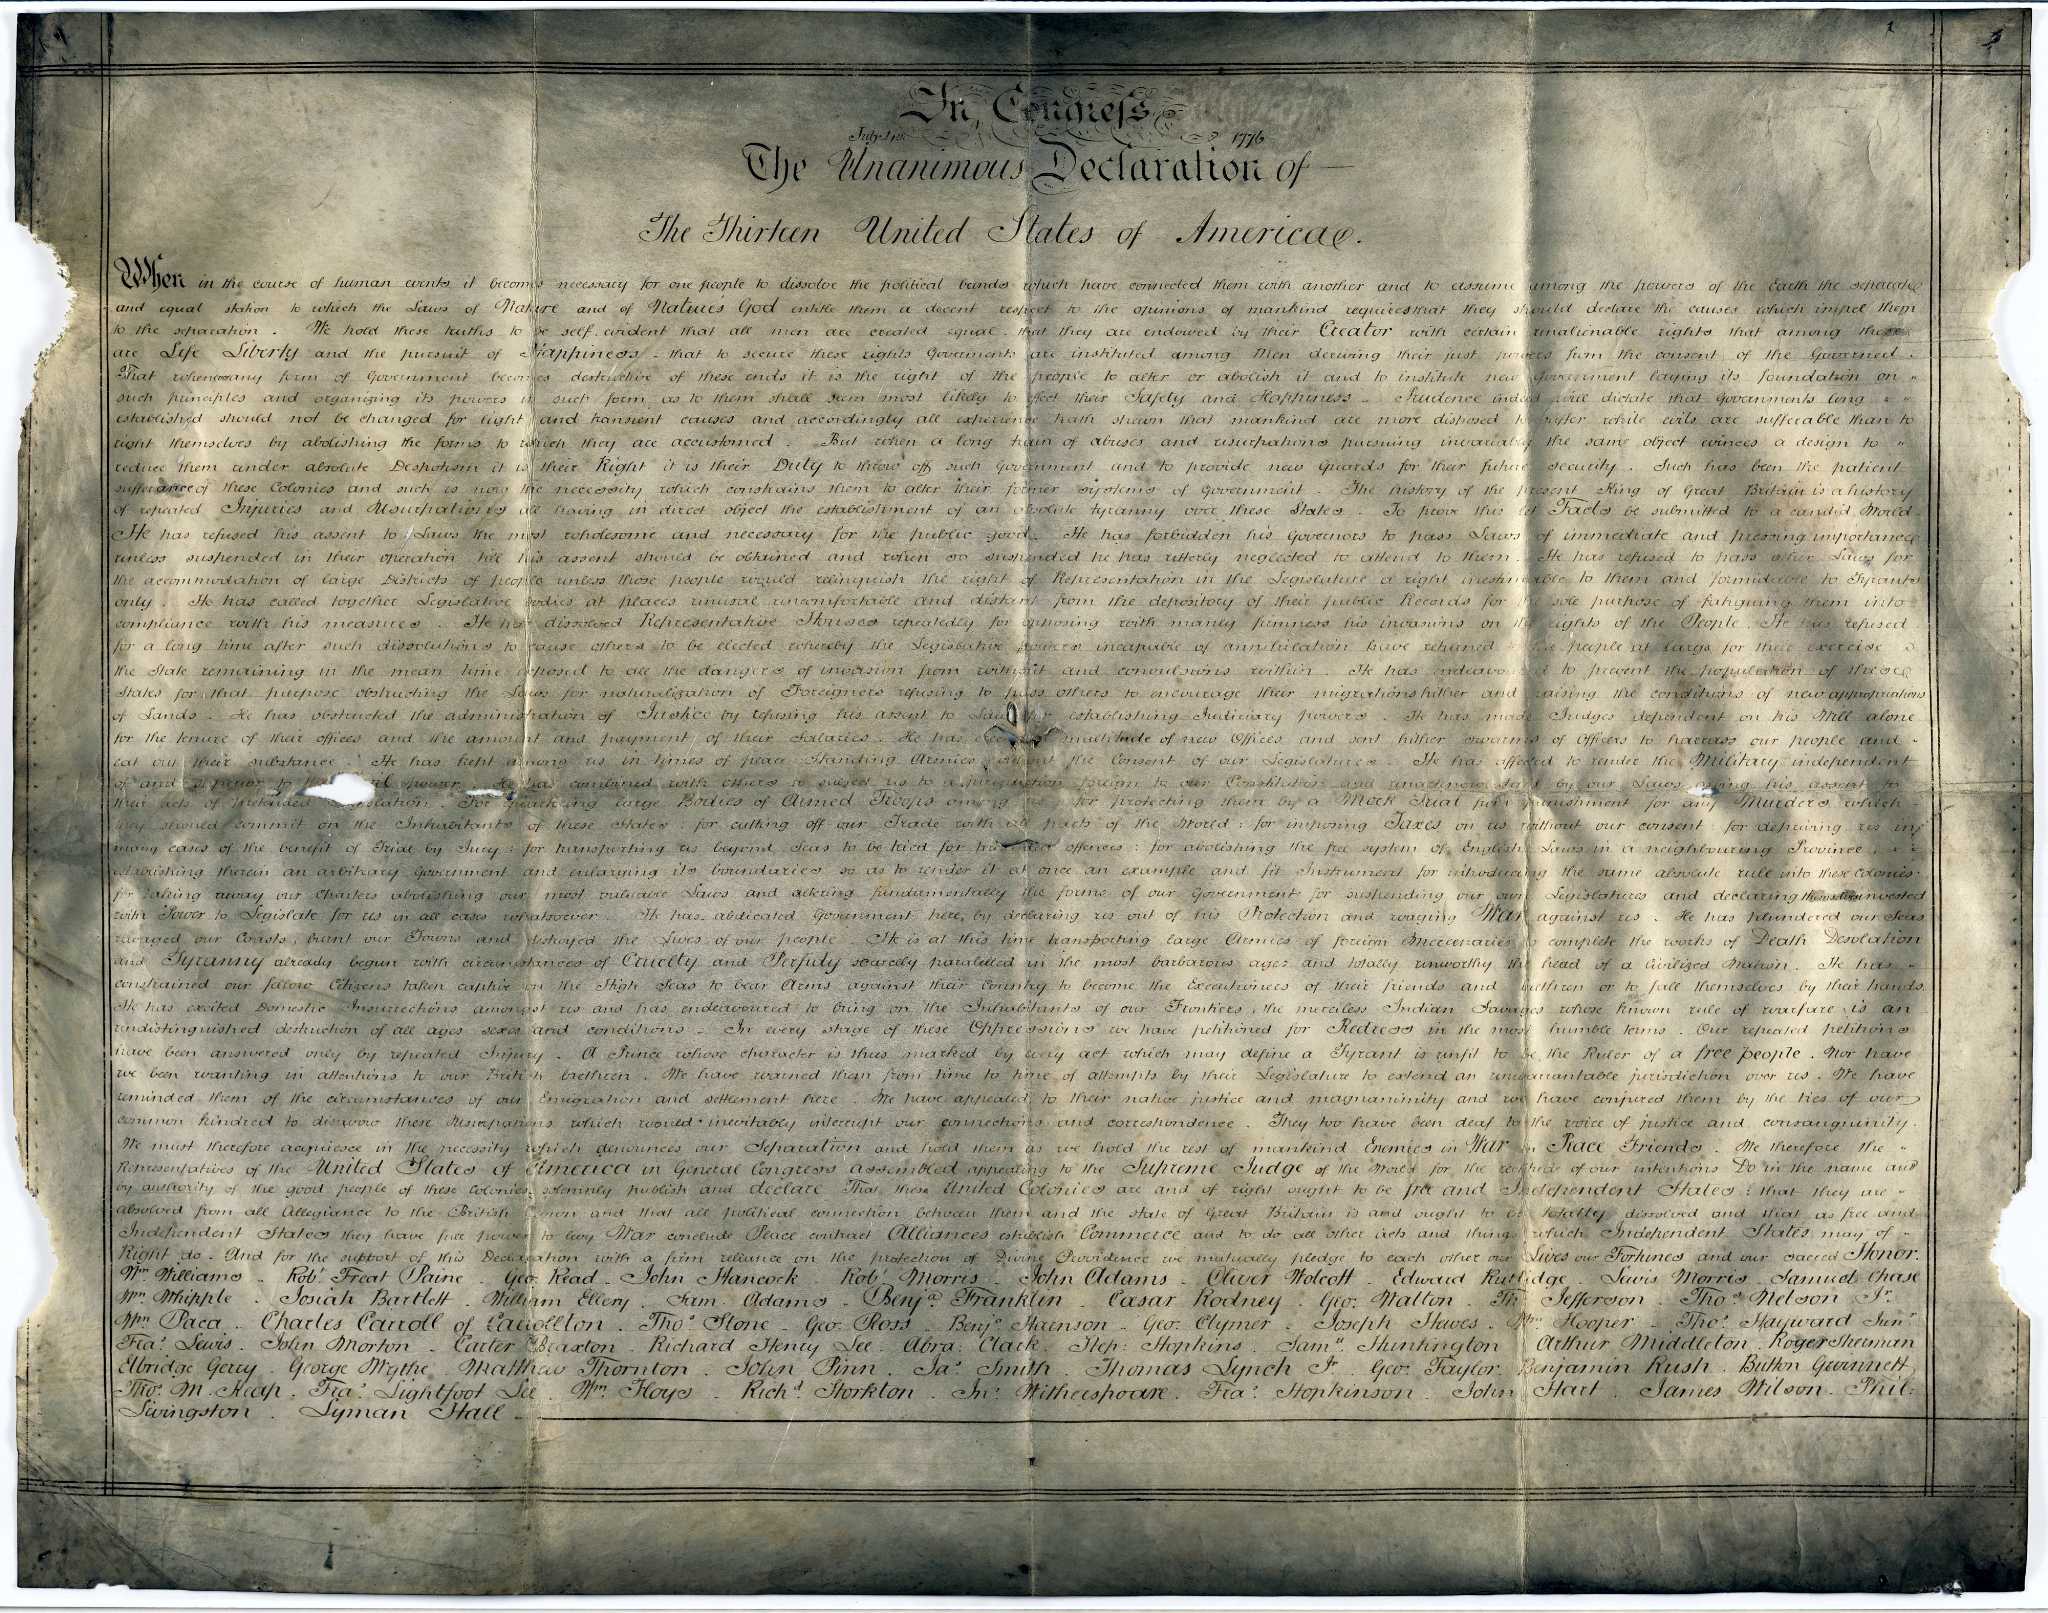 In Congress
July 4th 1776
The Unanimous Declaration of
The Thirteen United States of America
When in the course of human events it becomes necessary for one people to dissolve the political bands which have connected them with another and to assume among the powers of the Earth the separate
and equal station to which the Laws of Nature and of Nature's God entitle them a decent respect to the opinions of mankind requires that they should declare the causes which impel them
to the separation. We hold these truths to be self-evident that all men are created equal. that they are endowed by their Creator with certain unalienable rights that among these
are Life Liberty and the pursuit of Happiness - that to secure these rights Governments are instituted among Men deriving their just powers from the consent of the Governed.
That whenever any form of Government becomes destructive of these ends it is the right of the people to alter or abolish it and to institute new Government laying its foundation on
such principles and organizing its powers in such form as to them shall seem most likely to effect their Safety and Happiness. Prudence indeed will dictate that Governments long
established should not be changed for light and transient causes and accordingly all experience hath shewn that mankind are more disposed to suffer while evils are sufferable than to
right themselves by abolishing the forms to which they are accustomed. But when a long train of abuses and usurpations pursuing invariably the same object evinces a design to
reduce them under absolute Despotism it is their Right it is their Duty to throw off such Government and to provide new Guards for their future security. Such has been the patient
sufferance of these Colonies and such is now the necessity which constrains them to alter their former systems of Government. The history of the present King of Great Britain is a history
of repeated Injuries and Usurpations all having in direct object the establishment of an absolute tyranny over these States. To prove this let Facts be submitted to a candid World.
He has refused his assent to Laws the most wholesome and necessary for the public good. He has forbidden his Governors to pass Laws of immediate and pressing importance
unless suspended in their operation till his assent should be obtained and when so suspended he has utterly neglected to attend to them. He has refused to pass other Laws for
the accommodation of large Districts of people unless those people would relinquish the right of Representation in the Legislature a right inestimable to them and formidable to Tyrants
only. He has called together Legislative bodies at places unusual uncomfortable and distant from the depository of their public Records for the sole purpose of fatiguing them into
compliance with his measures. He has dissolved Representative Houses repeatedly for opposing with manly firmness his invasions on the rights of the People. He has refused
for a long time after such dissolutions to cause others to be elected whereby the Legislative powers incapable of annihilation have returned to the people at large for their exercise
the State remaining in the mean time exposed to all the dangers of invasion from without and convulsions within. He has endeavoured to prevent the population of these
States for that purpose obstructing the Laws for naturalization of Foreigners refusing to pass others to encourage their migrations hither and raising the conditions of new appropriations
of Lands. He has obstructed the administration of Justice by refusing his assent to Laws for establishing Judiciary powers. He has made Judges dependent on his Will alone
for the tenure of their offices and the amount and payment of their Salaries. He has multitude of new Offices and sent hither swarms of Officers to harrass our people and
eat out their substance. He has kept among us in times of peace Standing Armies without the Consent of our Legislatures. He has affected to render the Military independent
of and superior to power. He has combined with others to subject us to a jurisdiction foreign to our Constitution and unacknowledged by our Laws giving his assent to
their acts of pretended Legislation. For quartering large Bodies of Armed Troops among for protecting them by a Mock Trial from punishment for any Murders which
they should commit on the Inhabitants of these States: for cutting off our Trade with all parts of the World: for imposing Taxes on us without our consent: for depriving us in
many cases of the benefit of Trial by Jury: for transporting us beyond Seas to be tried for offences: for abolishing the free system of English Laws in a neighbouring Province,
establishing therein an arbitrary Government and enlarging its boundaries so as to render it at once an example and fit Instrument for introducing the same absolute rule into these Colonies:
for taking away our Charters abolishing our most valuable Laws and altering fundamentally the forms of our Government for suspending our own Legislatures and declaring themselves invested
with Power to Legislate for us in all cases whatsoever. He has abdicated Government here, by declaring us out of his Protection and waging War against us. He has plundered our Seas
ravaged our Coasts, burnt our Towns and destroyed the Lives of our people. He is at this time transporting large Armies of foreign Mercenaries to complete the works of Death Desolation
and Tyranny already begun with circumstances of Cruelty and Perfidy scarcely paralelled in the most barbarous ages and totally unworthy the head of a Civilized Nation. He has
constrained our fellow Citizens taken captive on the High Seas to bear Arms against their Country to become the Executioners of their friends and brethren or to fall themselves by their hands.
He has excited Domestic Insurrections amongst us and has endeavoured to bring on the Inhabitants of our Frontiers, the merciless Indian Savages whose known rule of warfare is an
undistinguished destruction of all ages sexes and conditions. In every stage of these Oppressions we have petitioned for Redress in the most humble terms. Our repeated petitions
have been answered only by repeated Injury. A Prince whose character is thus marked by every act which may define a Tyrant is unfit to be the Ruler of a free people. Nor have
we been wanting in attentions to our British brethren. We have warned them from time to time of attempts by their Legislature to extend an unwarrantable jurisdiction over us. We have
reminded them of the circumstances of our Emigration and settlement here. We have appealed to their native justice and magnanimity and we have conjured them by the ties of our
common kindred to disavow these Usurpations which would inevitably interrupt our connections and correspondence. They too have been deaf to the voice of justice and consanguinity.
We must therefore acquiesce in the necessity which denounces our Separation and hold them as we hold the rest of mankind Enemies in War in Peace Friends. We therefore the
Representatives of the United States of America in General Congress assembled appealing to the Supreme Judge of the World for the rectitude of our intentions Do in the name and
by authority of the good people of these Colonies solemnly publish and declare That these United Colonies are and of right ought to be free and Independent States: that they are
absolved from all Allegiance to the British Crown and that all political connection between them and the state of Great Britain is and ought to be totally dissolved and that as free and
Independent States they have full power to levy War conclude Peace contract Alliances establish Commerce and to do all other acts and things which Independent States may of
Right do. And for the support of this Declaration with a firm reliance on the protection of Divine Providence we mutually pledge to each other our Lives our Fortunes and our sacred Honor.
Wm Williams - Robt Treat Paine - Geo: Read - John Hancock - Robt Morris - John Adams - Oliver Wolcott - Edward Rutlidge - Lewis Morris - Samuel Chase
Wm Whipple - Josiah Bartlett - William Ellery - Sam Adams - Benja Franklin - Cæsar Rodney - Geo: Walton - Th Jefferson - Thos Nelson Jr
Wm Paca - Charles Carroll of Carrollton - Thos Stone - Geo: Ross - Benja Harrison - Geo: Clymer - Joseph Hewes - Wm Hooper - Thos Hayward Junr
Fras Lewis - John Morton - Carter Braxton - Richard Henry Lee - Abra: Clark - Step: Hopkins - Saml Huntington Arthur Middleton - Roger Sherman
Elbridge Gerry - George Wythe - Matthew Thornton - John Pinn - Jas Smith - Thomas Lynch Jr - Geo: Taylor - Benjamin Rush - Button Gwinnett
Thos M. Keap - Fras Lightfoot Lee - Wm Floyd - Richd Storkton - Jno Witherspoare - Fras Hopkinson - John Hart - James Wilson - Phil:
Livingston - Lyman Hall